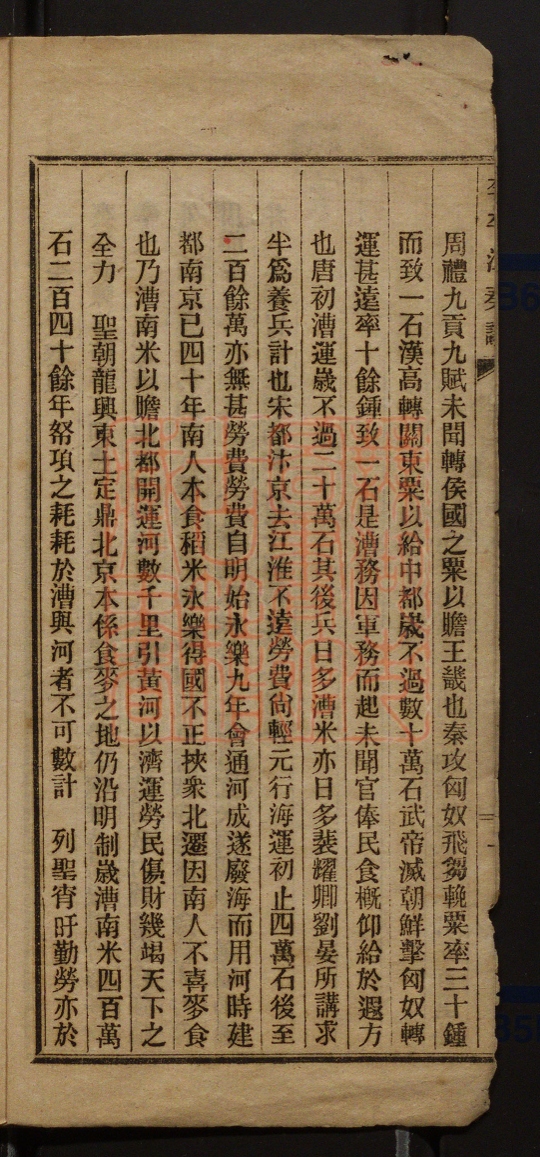 周禮九貢九賦未聞轉侯國之粟以贍王畿也秦攻匈奴飛芻輓粟率三十鍾
而致一石漢高轉關東粟以給中都歲不過數十萬石武帝滅朝鮮擊匈奴轉
運甚遠率十餘鍾致一石是漕務因軍務而起未聞官俸民食槪仰給於遐方
也唐初漕運歲不過二十萬石其後兵日多漕米亦日多裴耀卿劉晏所講求
半爲養兵計也宋都汴京去江淮不遠勞費尙輕元行海運初止四萬石後至
二百餘萬亦無甚勞費勞費自明始永樂九年會通河成遂廢海而用河時建
都南京已四十年南人本食稻米永樂得國不正挾衆北遷因南人不喜麥食
也乃漕南米以贍北都開運河數千里引黃河以濟運勞民傷財幾竭天下之
全力　聖朝龍興東土定鼎北京本係食麥之地仍沿明制歲漕南米四百萬
石二百四十餘年帑項之耗耗於漕與河者不可數計　列聖宵旰勤勞亦於